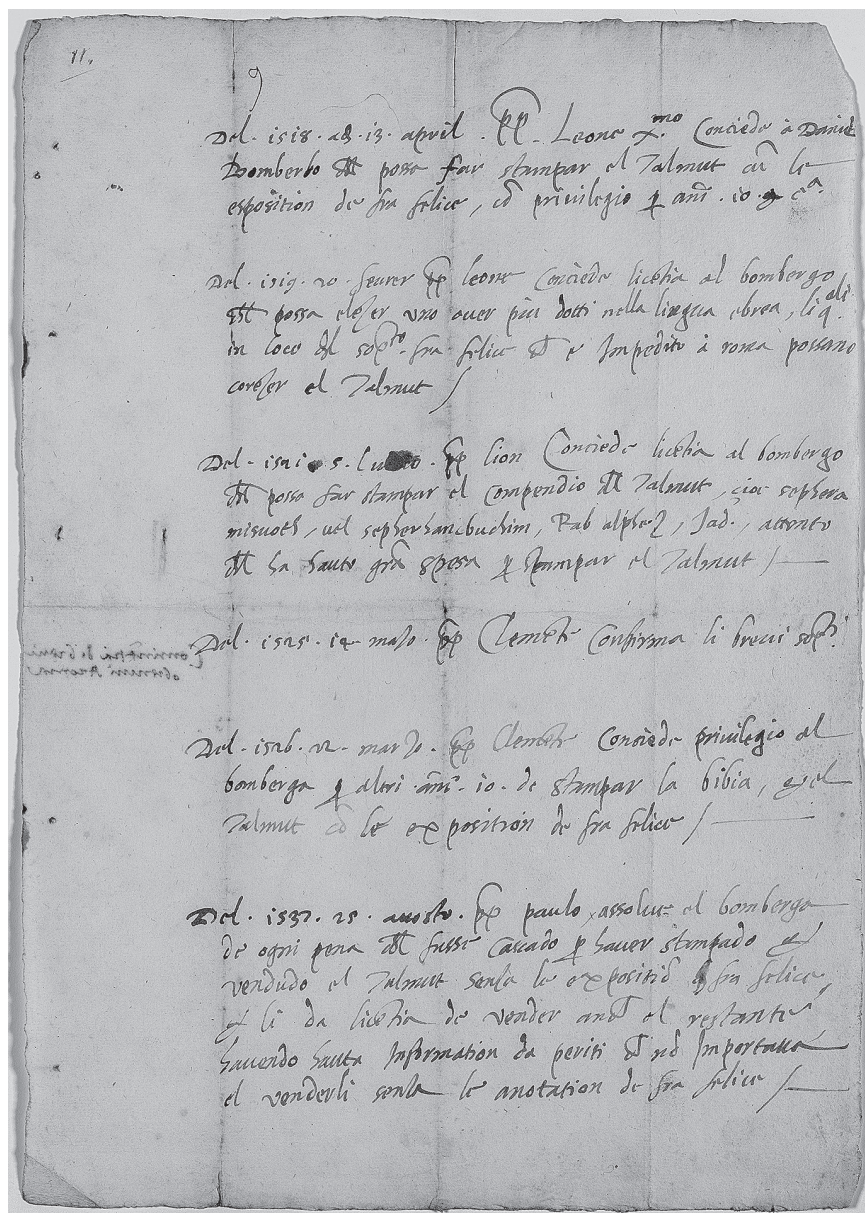 11.
Del · 1518 · ad · 13 · april · pp · Leone xmo Conciede à Daniel
Bomberbo che possa far stampar el Talmut cū le
esposition de fra felice, cō privilegio p anni · 10 ·
Del · 1519 · 20 · feurer pp leone Conciede licētia al bombergo
che possa elezer uno ouer più dotti nella lingua ebrea, li qali
in loco del sopto fra felice che è Impedito à roma possano
corezer el Talmut /
Del · 1521 · 5 · pp lion Conciede licētia al bombergo
che possa far stampar el Compendio del Talmut, cioe sephera
misuoth, uel, Rab alphez, Jad., attento
che ha hauto grā spesa p stampar el Talmut /
Del · 1525 · 14 · mazo · pp Clemēte Confirma li breui sopti
Del · 1526 · 22 · marzo · pp Clemēte Conciede privilegio al
bombergo p altri anni · 10 · de stampar la bibia, & el
Talmut cō le exposition de fra felice /
Del · 1537 · 25 · auosto · pp paulo, assolue el bombergo
de ogni pena che fusse Cascado p hauer stampado &
vendudo el Talmut senza le expositiō de fra felice,
& li da licētia de vender anchē el restante
hauendo hauta Information da periti che nō Importaua
el venderli senza le anotation de fra felice /